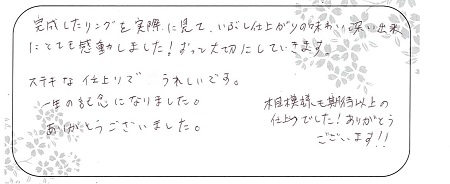 完成したリングを実際に見て、いぶし仕上がりの味わい深い出来
にとても感動しました！ずっと大切にしていきます。
ステキな仕上りで うれしいです。
一生の記念になりました。
ありがとうございました。
木目模様も期待以上の
仕上りでした！ありがとう
ございます!!